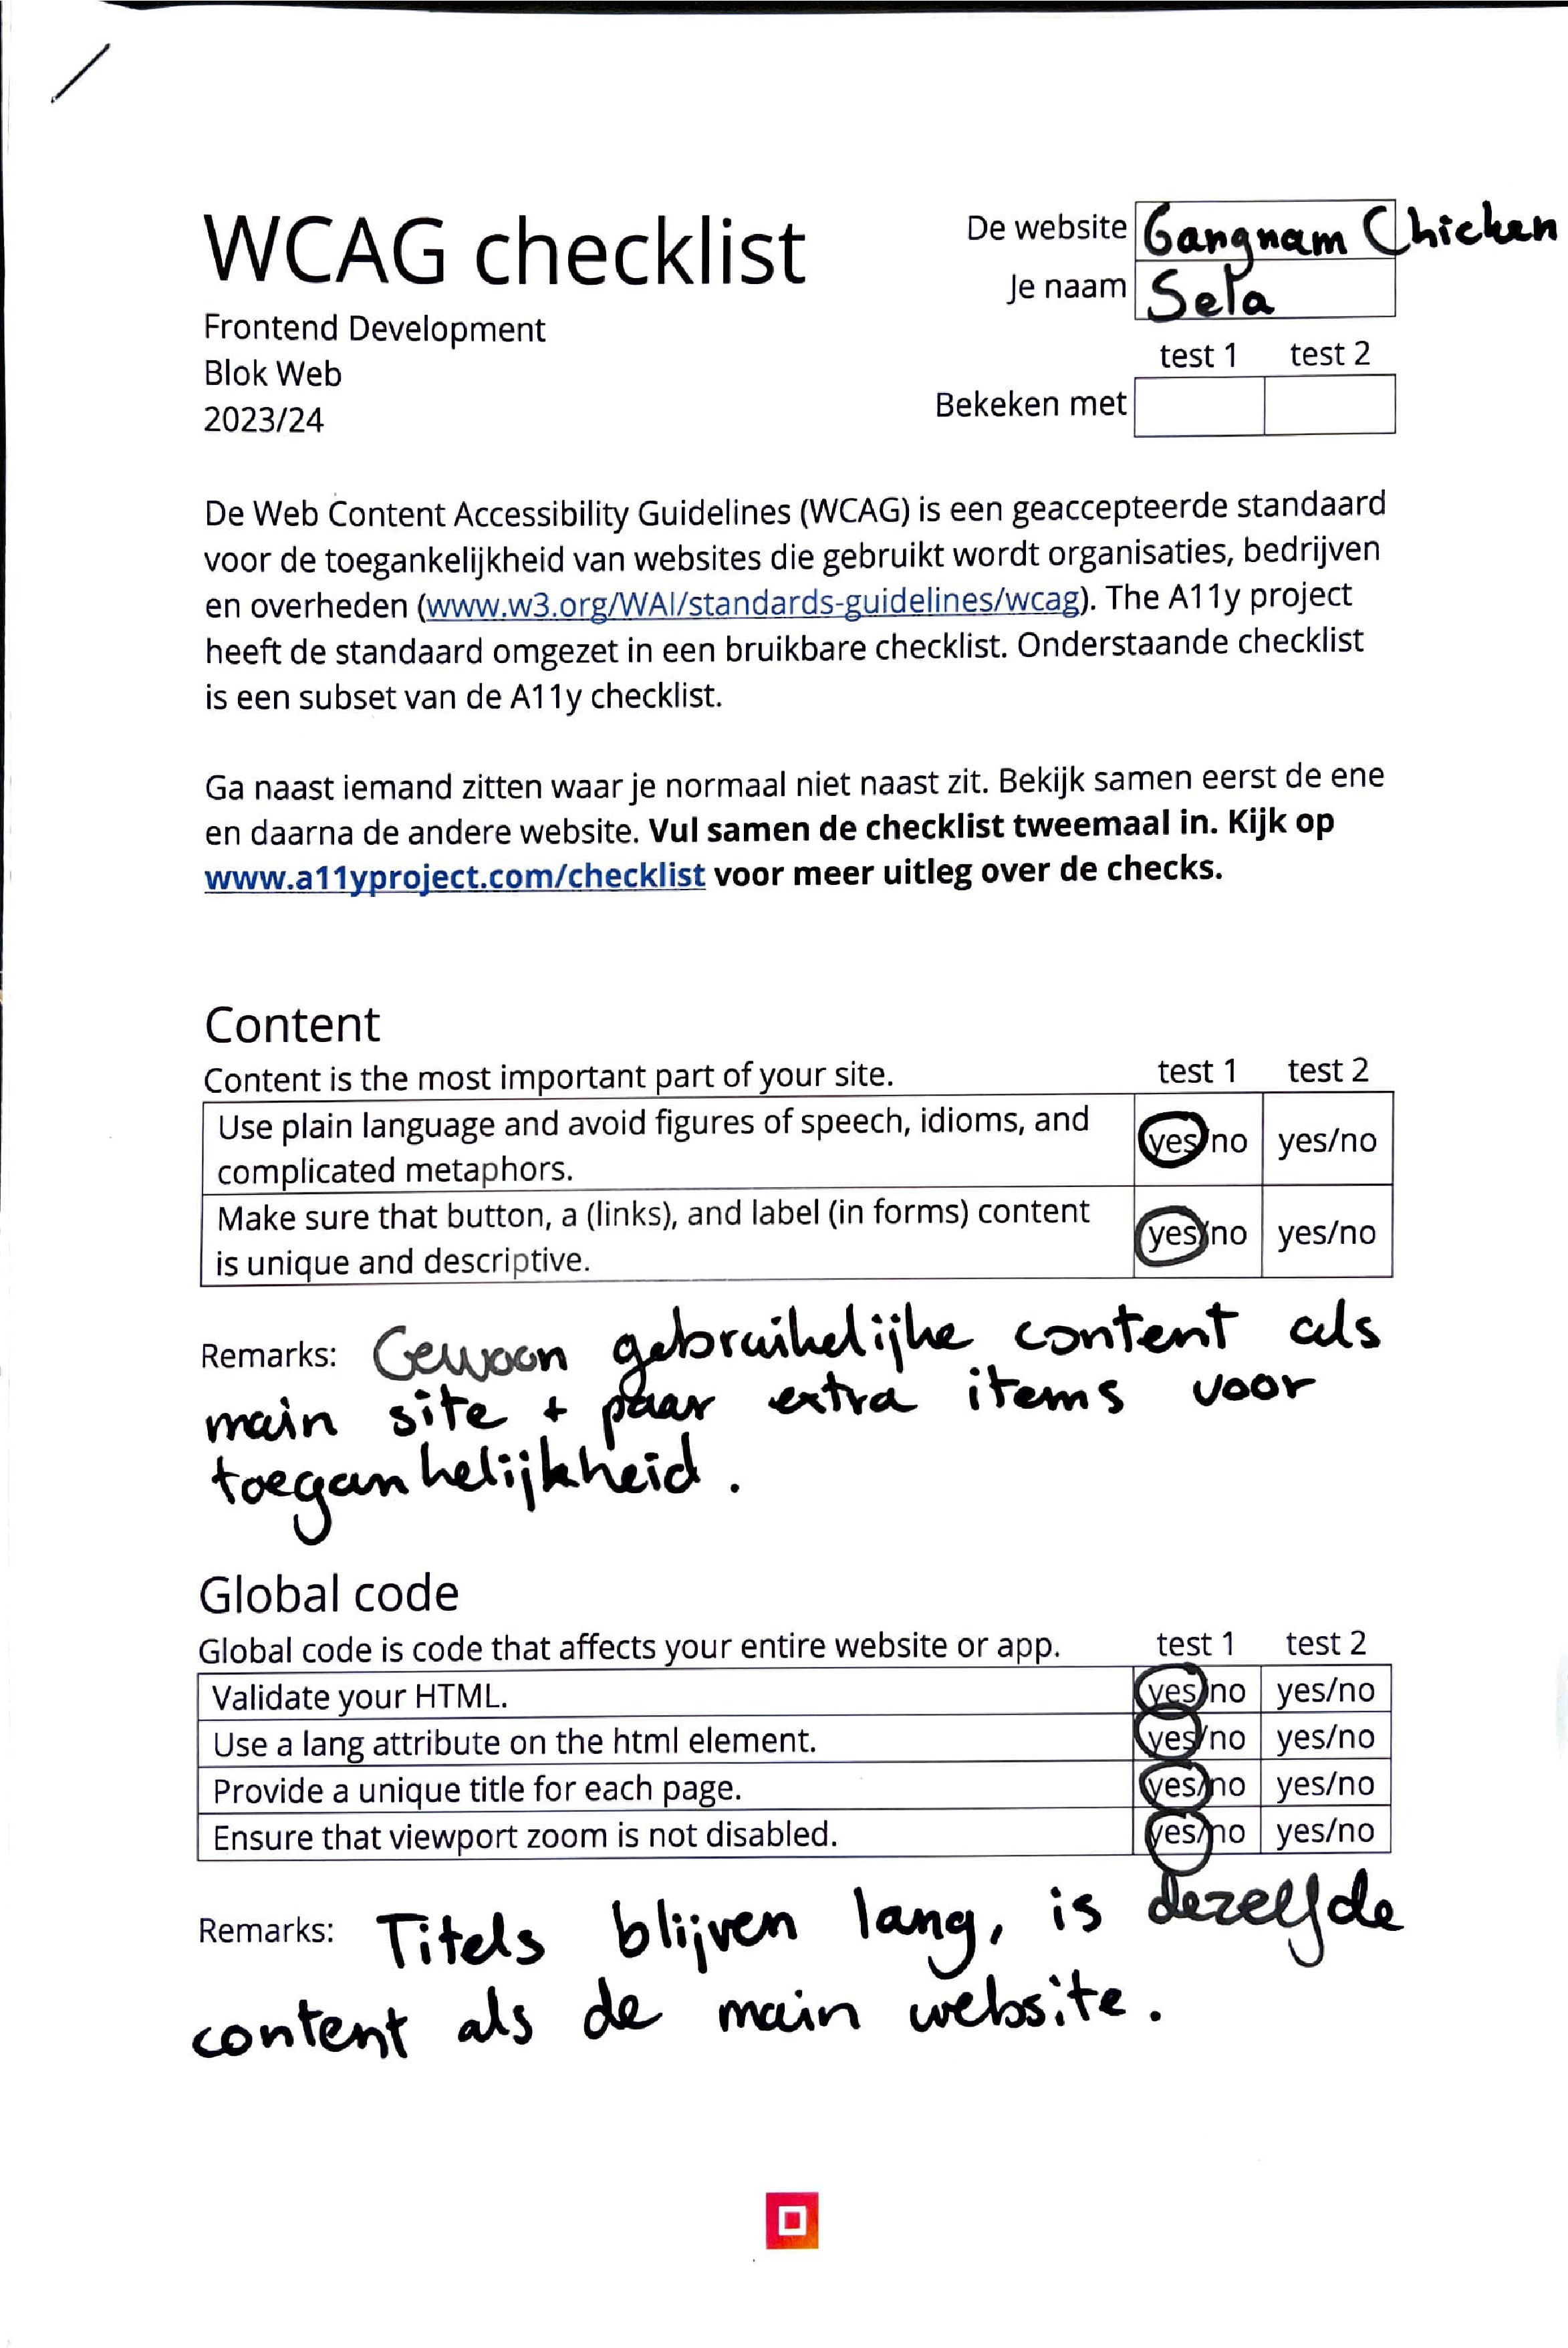 WCAG checklist
Frontend Development
Blok Web
2023/24
De website Gangnam Chicken
Je naam Seta
test 1 test 2
Bekeken met
De Web Content Accessibility Guidelines (WCAG) is een geaccepteerde standaard
voor de toegankelijkheid van websites die gebruikt wordt organisaties, bedrijven
en overheden (www.w3.org/WAI/standards-guidelines/wcag). The A11y project
heeft de standaard omgezet in een bruikbare checklist. Onderstaande checklist
is een subset van de A11y checklist.
Ga naast iemand zitten waar je normaal niet naast zit. Bekijk samen eerst de ene
en daarna de andere website. Vul samen de checklist tweemaal in. Kijk op
www.a11yproject.com/checklist voor meer uitleg over de checks.
Content
Content is the most important part of your site. test 1 test 2
Use plain language and avoid figures of speech, idioms, and
complicated metaphors. yes/no yes/no
Make sure that button, a (links), and label (in forms) content
is unique and descriptive. yes/no yes/no
Remarks: Gewoon gebruikelijke content als
main site + paar extra items voor
toegankelijkheid.
Global code
Global code is code that affects your entire website or app. test 1 test 2
Validate your HTML. yes/no yes/no
Use a lang attribute on the html element. yes/no yes/no
Provide a unique title for each page. yes/no yes/no
Ensure that viewport zoom is not disabled. yes/no yes/no
Remarks: Titels blijven lang, is dezelfde
content als de main website.